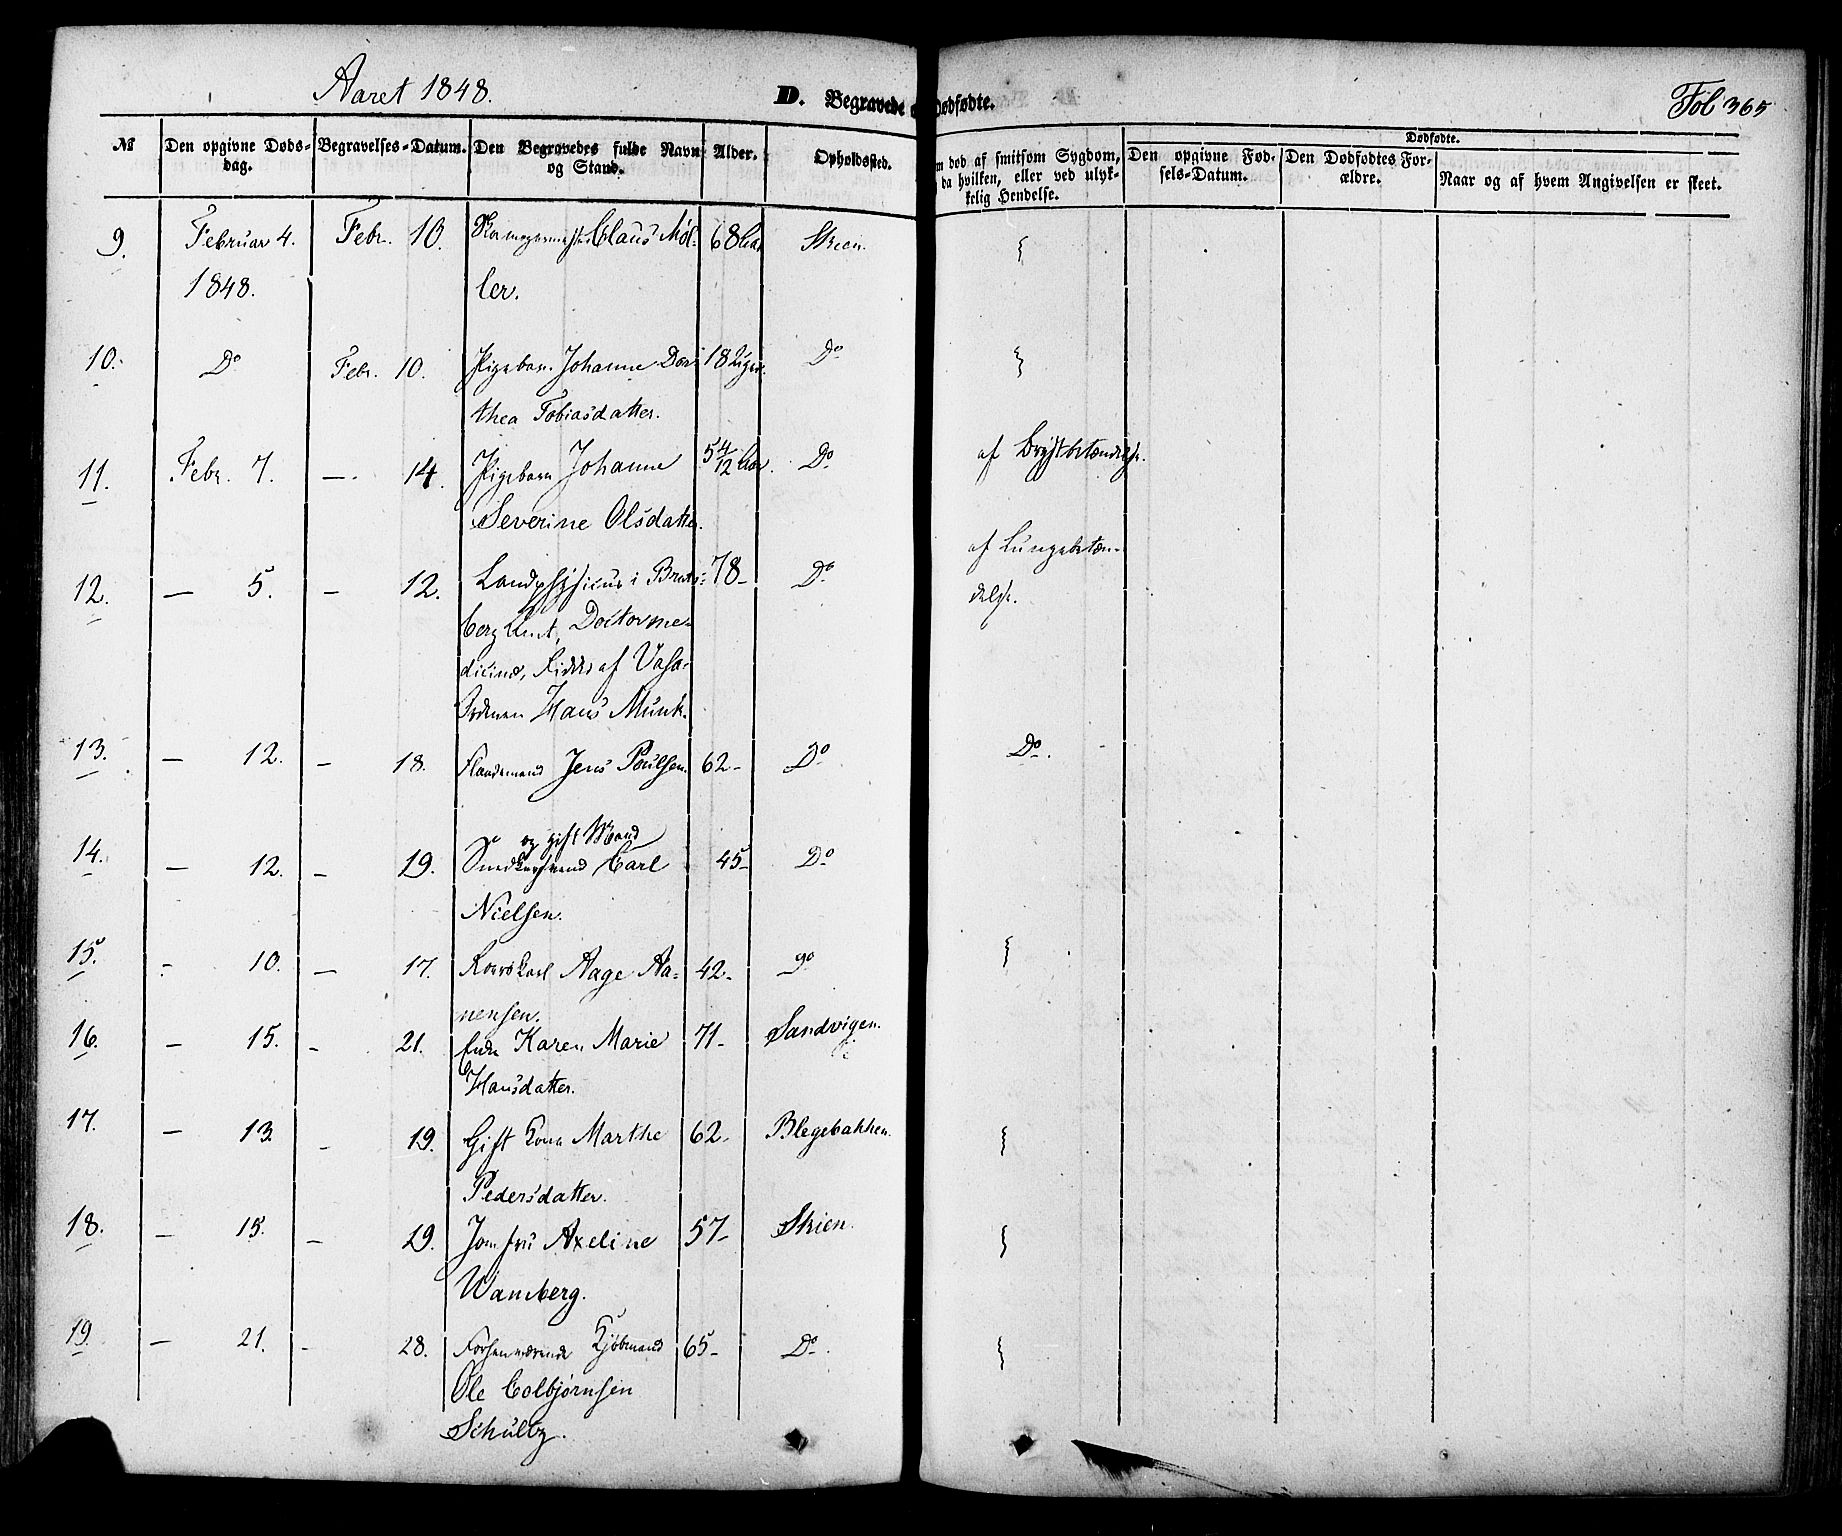 Aaret 1848.
D. Begravede o Dødfødte.
Fol 365
№
Den opgivne Dødsdag.
Begravelses-Datum.
Den Begravedes fulde Navn og Stand.
Alder.
Opholdssted.
m død af smitsom Sygdom, da hvilken, eller ved ulykkelig Hendelse.
Dødfødte.
Den opgivne Fødsels-Datum.
Den Dødfødtes Forældre.
Naar og af hvem Angivelsen er skeet.
9. Februar 4. Febr. 10. Claus Møl- 68 Aar Skien.
1848. ler.
10. Do Febr. 10. Pigebarn Johanne Dor- 18 Uger. Do
thea Tobiasdatter.
11. Febr. 7. — 14. Pigebarn Johanne 5 4/12 Aar. Do af Brystbetændelse.
Severine Olsdatter.
12. — 5. – 12. Landphysicus i Brats- 78 – Do af Lungebetæn-
berg Amt, Doctor me- delse.
dicinæ, Ridder af Vasa-
Ordenen Hans Munk.
13. — 12. – 18. Jens Poulsen. 62 – Do Do.
og gift Mand
14. — 12. – 19. Smedesvend Carl 45 – Do
Nielsen.
15. – 10. – 17. Aage Aa- 42 – do
nensen.
16. – 15. – 21. Enke Karen Marie 71 – Sandvigen.
Hansdatter.
17. — 13. – 19. Gift Kone Marthe 62 – Blegebakken.
Pedersdatter.
18. – 15. – 29. Jomfru Axeline 57 – Skien.
Wamberg.
19. – 21. – 28. Forhenværende Kjøbmand 65 – Do.
Ole Colbjørnsen
Schultz.